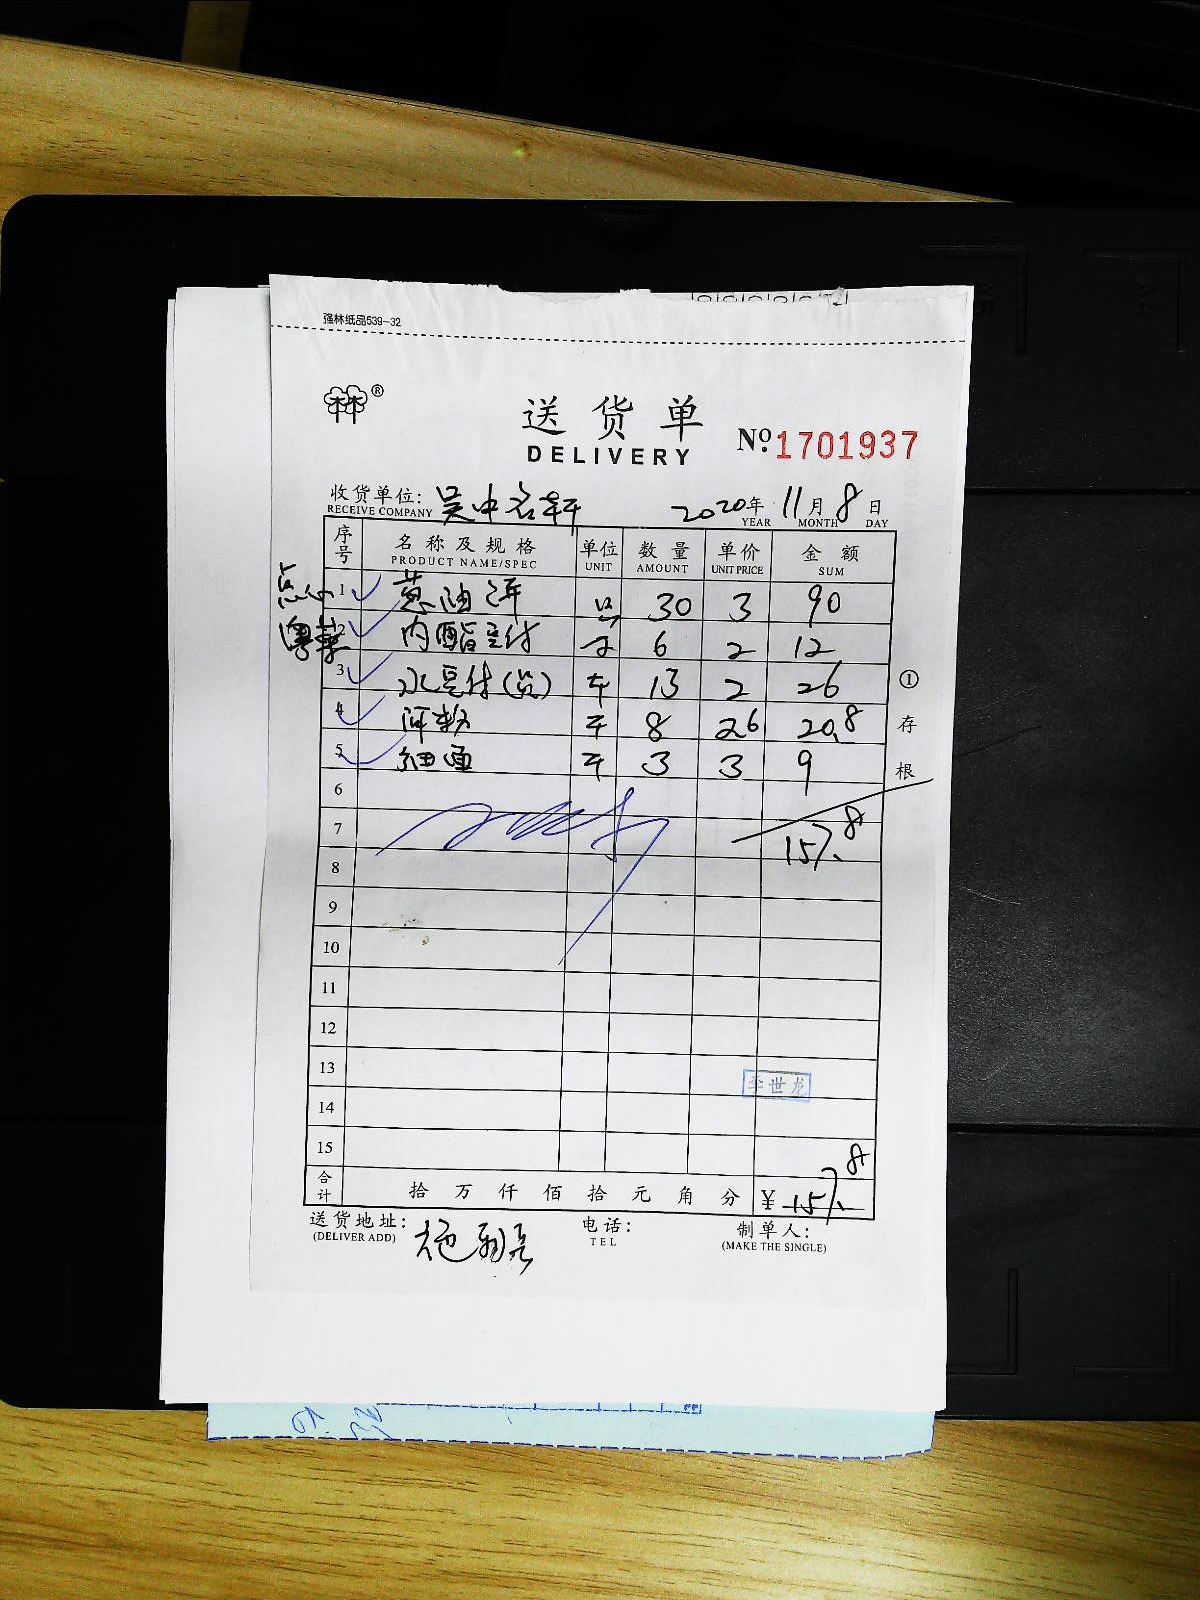 强林纸品539-32
®
送货单
DELIVERY
№:1701937
收货单位: 吴中名轩 2020年11月8日
RECEIVE COMPANY YEAR MONTH DAY
序号 名称及规格 单位 数量 单价 金额
PRODUCT NAME/SPEC UNIT AMOUNT UNIT PRICE SUM
点心 1 葱油饼 只 30 3 90
粤菜 2 内酯豆付 6 2 12
3 水豆付(货) 13 2 26
4 8 2.6 20.8
5 细面 3 3 9
6
7 157.8
8
9
10
11
12
13 李世龙
14
15
合计 拾万仟佰拾元角分 ¥157.8
①存根
送货地址: 电话: 制单人:
(DELIVER ADD) TEL (MAKE THE SINGLE)